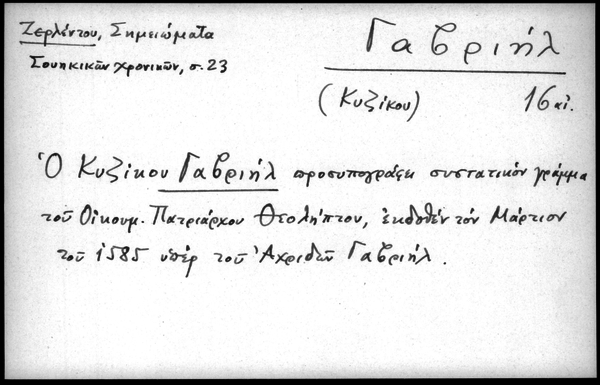 Ζερλέντου, Σημειώματα
Σουηκικῶν χρονικῶν, σ. 23
Γαβριήλ
(Κυζίκου) 16 αἰ.
Ὁ Κυζίκου Γαβριήλ προσυπογράφει συστατικόν γράμμα
τοῦ Οἰκουμ. Πατριάρχου Θεολήπτου, ἐκδοθέν τόν Μάρτιον
τοῦ 1585 ὑπέρ τοῦ Ἀχριδῶν Γαβριήλ.